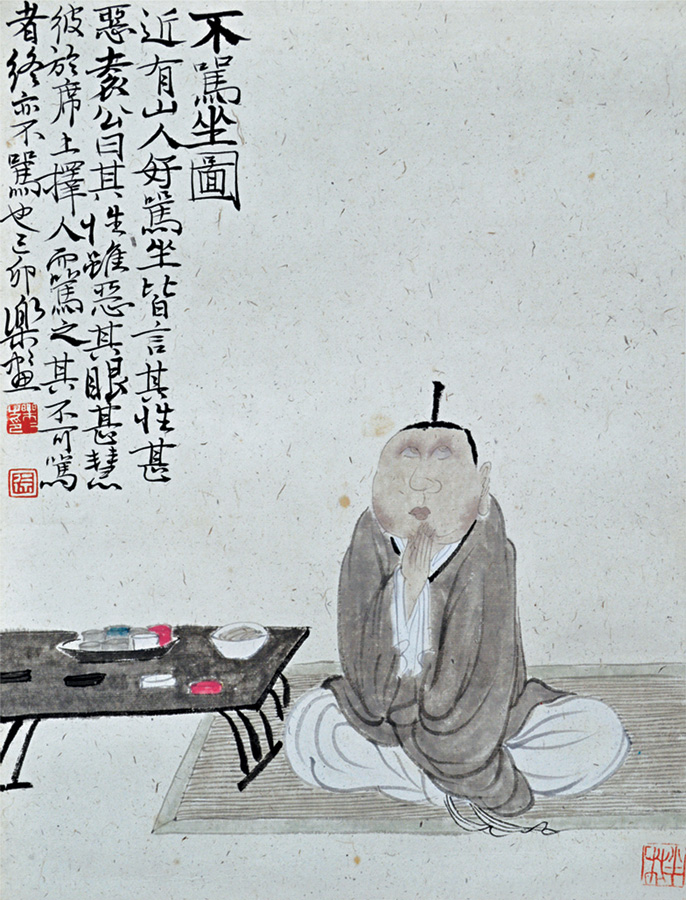 不罵坐圖
近有山人好罵坐皆言其性甚
惡袁公曰其性雖惡其眼甚慧
彼於席上擇人而罵之其不可罵
者終亦不罵也己卯樂畫